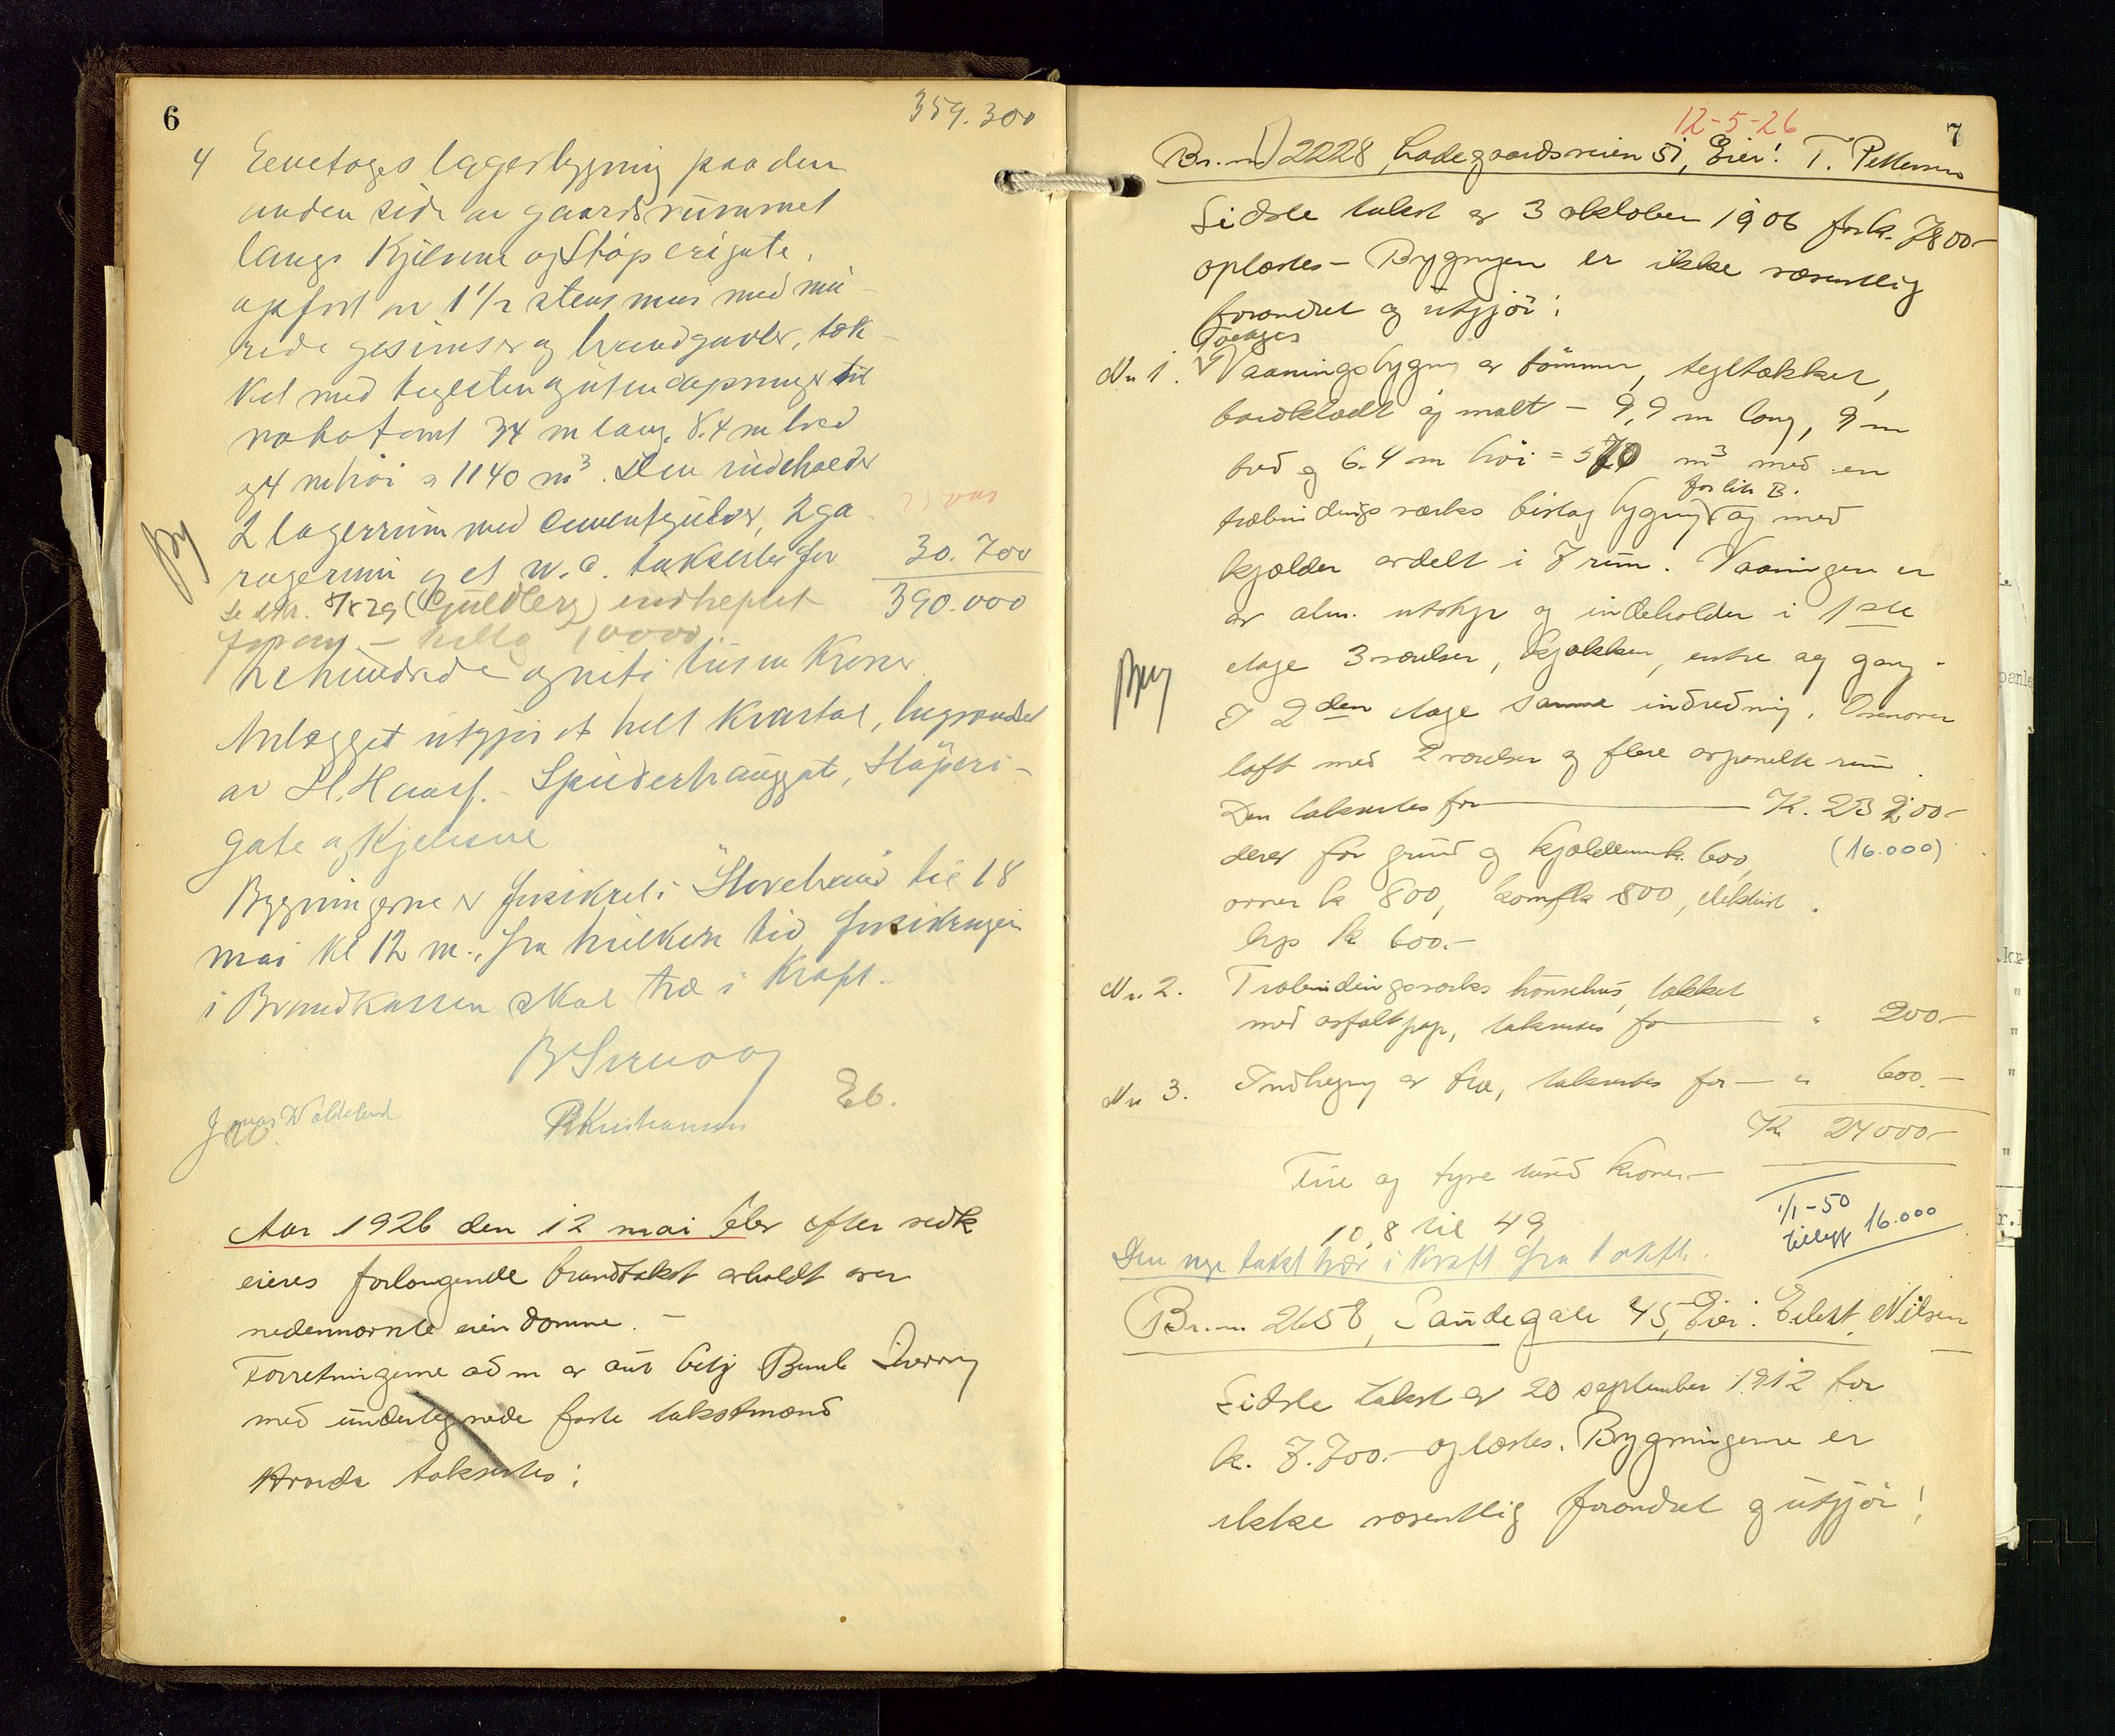 6
359.300
4 Eenetages lagerbygning paa den
anden side av gaardsrummet
langs Kjelvene og Støperigate,
opført av 1 1/2 stens mur med mu-
rede gesimser og brandgavler, tæk-
ket med teglsten og uten aapninger til
nabotomt 34 m lang, 8.4 m bred
og 4 m høi = 1140 m3. Den indeholder
2 lagerrum med cementgulver, 2 ga-
ragerum og et w.c. takseres for 30.700
390.000
Se 8/8 29 indheftet
10000
trehundrede og niti tusen Kroner.
Anlægget utgjør et helt kvartal, begrændset
av St. Hansg. Støperi-
gate og Kjelvene
Bygningerne er forsikret i "Storebrand" til 18
mai kl 12 m., fra hvilken tid forsikringen
i Brandkassen skal træ i Kraft.
Eb.
Aar 1926 den 12 mai blev efter vedk
eieres forlangende brandtakst avholdt over
nedennævnte eiendomme.-
Forretningerne adm av
med undertegnede faste takstmænd
Hvorda taksertes:
12-5-26
7
Br.nr 2228, Ladegaardsveien 51, Eier: T. Pettersen
Sidste takst av 3 oktober 1906 for k. 7800-
oplæstes- Bygningen er ikke væsentlig
forandret og utgjør:
Toetages
Nr 1. Vaaningsbygning av tømmer, tegltækket,
bordklædt og malt - 9,9 m lang, 9 m
bred og 6.4 m høi = 570 m3 med en
træbindingsværks bislag bygning og med
for lit. B.
kjælder avdelt i 7 rum. Vaaningen er
av alm. utstyr og indeholder i 1ste
etage 3 værelser, kjøkken, entre og gang.
I 2den etage samme indredning. Ovenover
loft med 2 værelser og flere avpanelte rum.
Den takseres for K. 23200-
derav for grund og kjældermur k. 600, (16.000)
ovner k 800, komf k 800, elektrisk
lys k 600.-
Nr. 2. Træbindingsværks hønsehus, tækket
med asfaltpap, takseres for " 200-
Nr 3. Indhegning av træ, takseres for - " 600.-
Kr 24000-
Fire og tyve tusind kroner-
1/1-50
tillegg 16.000
10,8 til 49
Den nye takst træ i kraft fra 1 okt.
Br.nr. 2658, Sandegate 45, Eier: Eilert Nilsen
Sidste takst av 20 september 1912 for
k. 7.700.- oplæstes. Bygningerne er
ikke væsentlig forandret og utgjør: